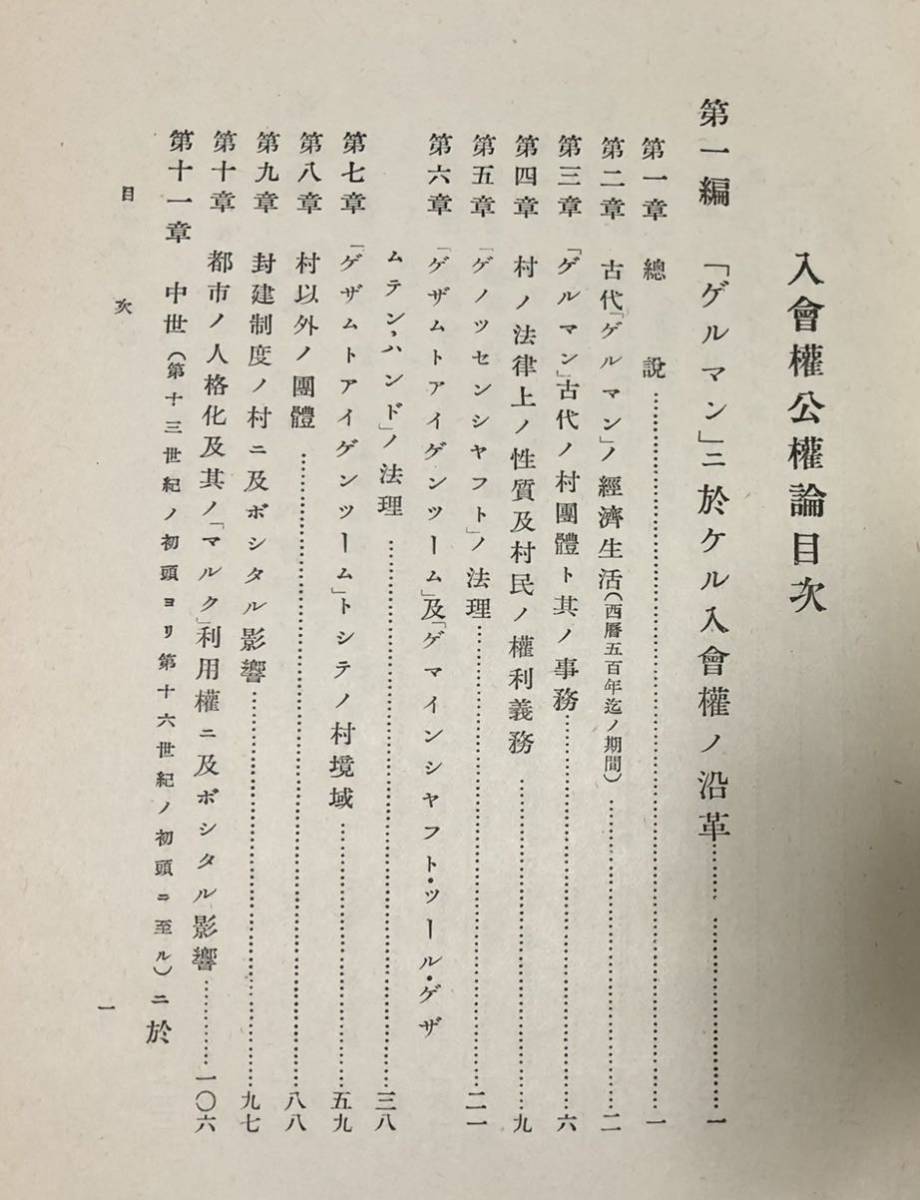 入會權公權論目次
第一編 「ゲルマン」ニ於ケル入會權ノ沿革……………一
第一章 總說……………一
第二章 古代「ゲルマン」ノ經濟生活(西曆五百年迄ノ期間)……………二
第三章 「ゲルマン」古代ノ村團體ト其ノ事務……………六
第四章 村ノ法律上ノ性質及村民ノ權利義務……………九
第五章 「ゲノッセンシャフト」ノ法理……………二一
第六章 「ゲザムトアイゲンツーム」及「ゲマインシャフト・ツール・ゲザ
ムテン・ハンド」ノ法理……………三八
第七章 「ゲザムトアイゲンツーム」トシテノ村境域……………五九
第八章 村以外ノ團體……………八八
第九章 封建制度ノ村ニ及ボシタル影響……………九七
第十章 都市ノ人格化及其ノ「マルク」利用權ニ及ボシタル影響……………一〇六
第十一章 中世(第十三世紀ノ初頭ヨリ第十六世紀ノ初頭ニ至ル)ニ於
目次
一